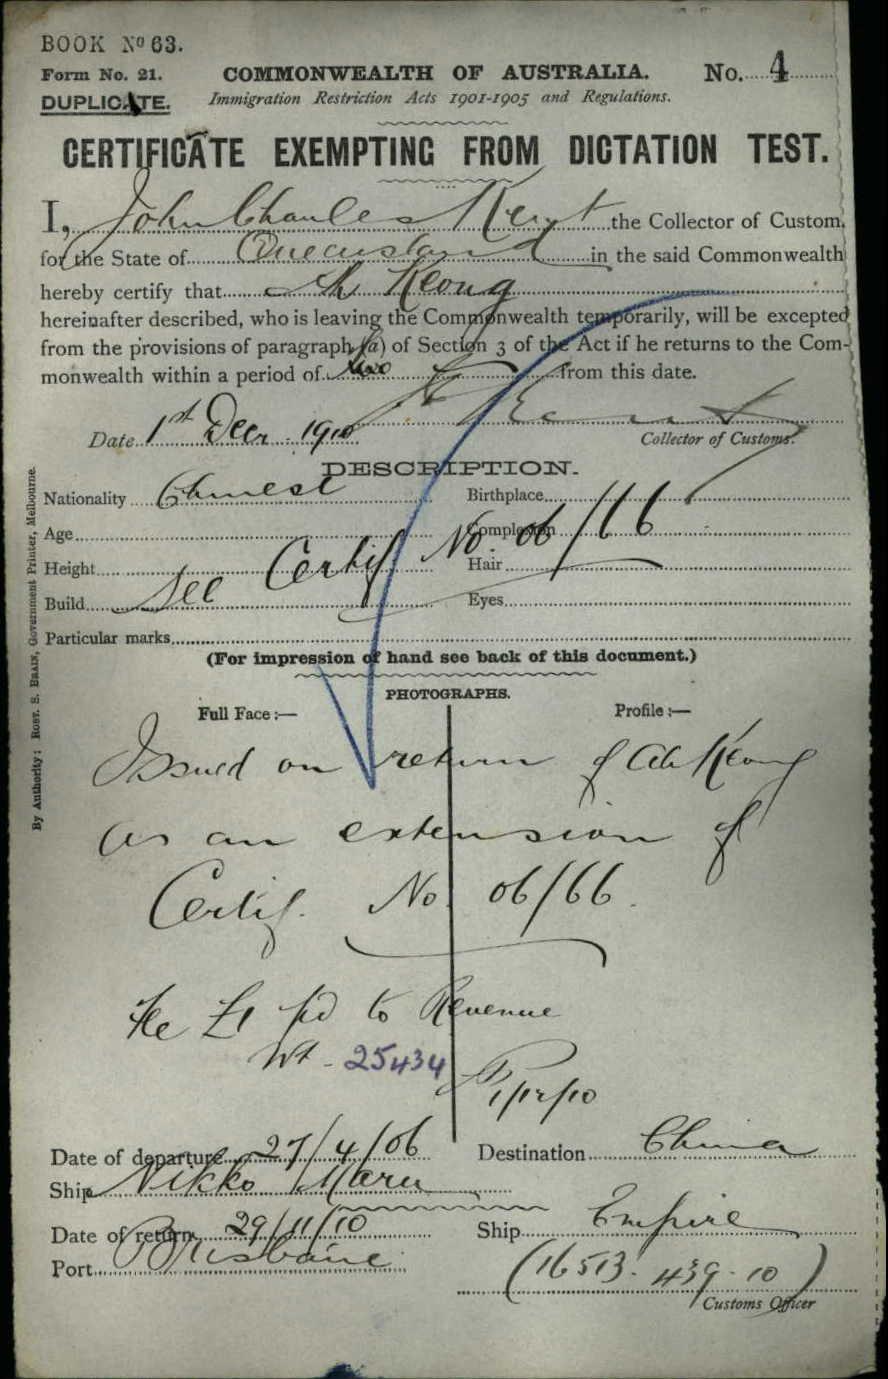 BOOK Nº 63.
Form No. 21. COMMONWEALTH OF AUSTRALIA. No. 4
DUPLICATE. Immigration Restriction Acts 1901-1905 and Regulations.
CERTIFICATE EXEMPTING FROM DICTATION TEST.
I, John Charles Kent the Collector of Custom
for the State of Queensland in the said Commonwealth
hereby certify that Ah Keong
hereinafter described, who is leaving the Commonwealth temporarily, will be excepted
from the provisions of paragraph (a) of Section 3 of the Act if he returns to the Com-
monwealth within a period of two from this date.
Kent
Date 1st Decr. 1910 Collector of Customs.
DESCRIPTION.
Nationality Chinese Birthplace
Age Complexion
Height Hair
See Certif No. 06/66
Build Eyes
Particular marks
(For impression of hand see back of this document.)
PHOTOGRAPHS.
Full Face :— Profile :—
Issued on return of Ah Keong
as an extension of
Certif. No. 06/66.
Fee £1 pd to Revenue
25434
1/12/10
Date of departure 27/4/06 Destination China
Ship Nikko Maru
Date of return 29/11/10 Ship Empire
Port Brisbane
(16513. 439. 10)
Customs Officer
By Authority; ROBT. S. BRAIN, Government Printer, Melbourne.